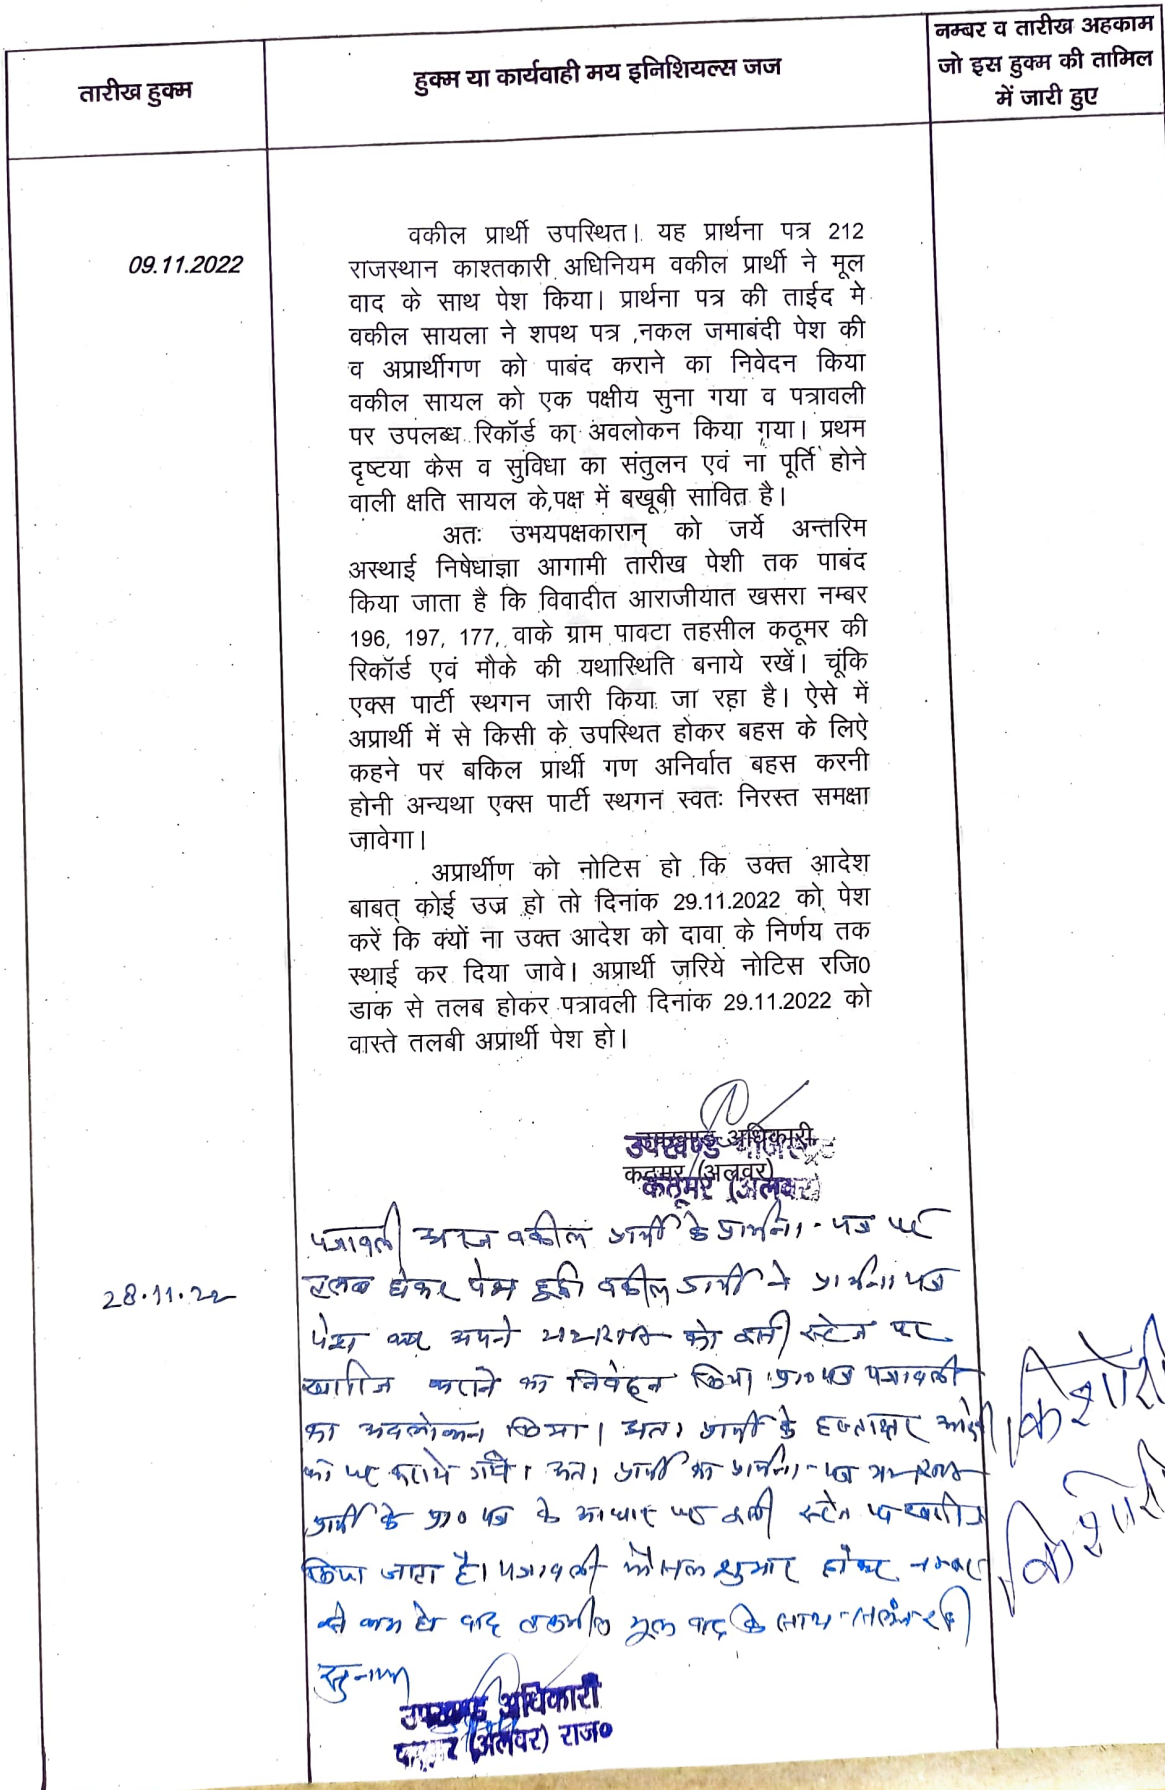 तारीख हुक्म
हुक्म या कार्यवाही मय इनिशियल्स जज
नम्बर व तारीख अहकाम
जो इस हुक्म की तामिल
में जारी हुए
09.11.2022
वकील प्रार्थी उपस्थित। यह प्रार्थना पत्र 212
राजस्थान काश्तकारी अधिनियम वकील प्रार्थी ने मूल
वाद के साथ पेश किया। प्रार्थना पत्र की ताईद मे
वकील सायला ने शपथ पत्र ,नकल जमाबंदी पेश की
व अप्रार्थीगण को पाबंद कराने का निवेदन किया
वकील सायल को एक पक्षीय सुना गया व पत्रावली
पर उपलब्ध रिकॉर्ड का अवलोकन किया गया। प्रथम
दृष्टया केस व सुविधा का संतुलन एवं ना पूर्ति होने
वाली क्षति सायल के पक्ष में बखूबी सावित है।
अतः उभयपक्षकारान् को जर्ये अन्तरिम
अस्थाई निषेधाज्ञा आगामी तारीख पेशी तक पाबंद
किया जाता है कि विवादीत आराजीयात खसरा नम्बर
196, 197, 177, वाके ग्राम पावटा तहसील कठूमर की
रिकॉर्ड एवं मौके की यथास्थिति बनाये रखें। चूंकि
एक्स पार्टी स्थगन जारी किया जा रहा है। ऐसे में
अप्रार्थी में से किसी के उपस्थित होकर बहस के लिऐ
कहने पर बकिल प्रार्थी गण अनिर्वात बहस करनी
होनी अन्यथा एक्स पार्टी स्थगन स्वतः निरस्त समक्षा
जावेगा।
अप्रार्थीण को नोटिस हो कि उक्त आदेश
बाबत् कोई उज्र हो तो दिनांक 29.11.2022 को पेश
करें कि क्यों ना उक्त आदेश को दावा के निर्णय तक
स्थाई कर दिया जावे। अप्रार्थी जरिये नोटिस रजि0
डाक से तलब होकर पत्रावली दिनांक 29.11.2022 को
वास्ते तलबी अप्रार्थी पेश हो।
उपखण्ड अधिकारी
कठूमर (अलवर)
कठूमर (अलवर)
28.11.22
पत्रावली आज वकील प्रार्थी के प्रार्थना-पत्र पर
तलब होकर पेश हुई। वकील प्रार्थी ने प्रार्थना पत्र
पेश कर अपने को इसी स्टेज पर
खारिज कराने का निवेदन किया। प्रा० पत्र पत्रावली
का अवलोकन किया। अतः प्रार्थी के हस्ताक्षर
पर कराये गये। अतः प्रार्थी का प्रार्थना-पत्र
प्रार्थी के प्रा० पत्र के आधार पर इसी स्टेज पर खारिज
किया जाता है। पत्रावली फैसल शुमार होकर नम्बर
से कम हो बाद तकमील मूल वाद के साथ
किशोरी
किशोरी
उपखण्ड अधिकारी
(अलवर) राज०